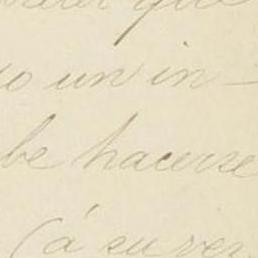 que
un in-
be hacerse
(á su ver